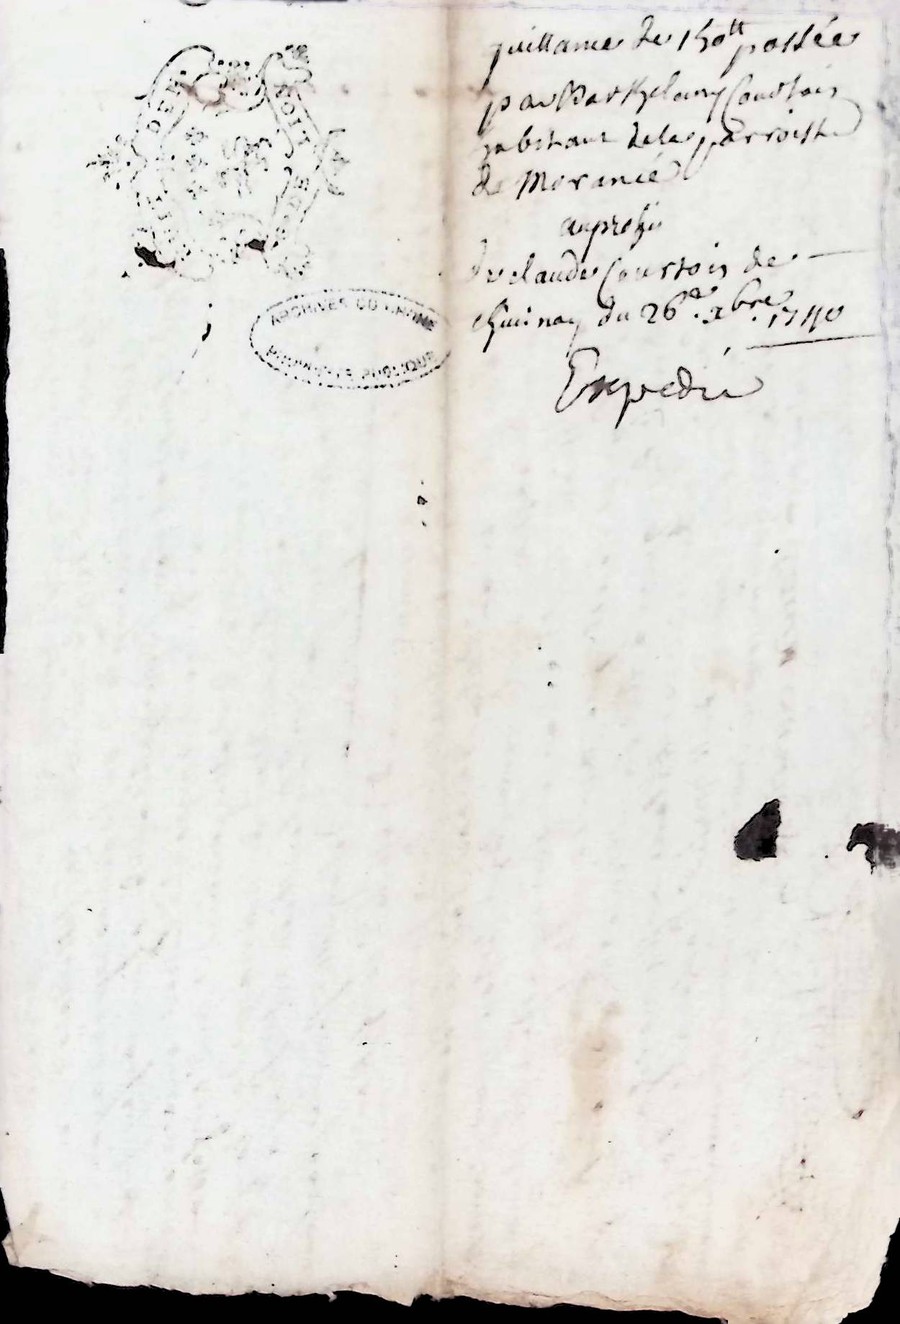 quittance de 150tt passée
par Barthelemy Courtois
habitant de la parroisse
de Morancé
au profit
de claude Courtois de
du 26e. xbre. 1740
Expedié
ARCHIVES DU RHONE
PROPRIÉTÉ PUBLIQUE